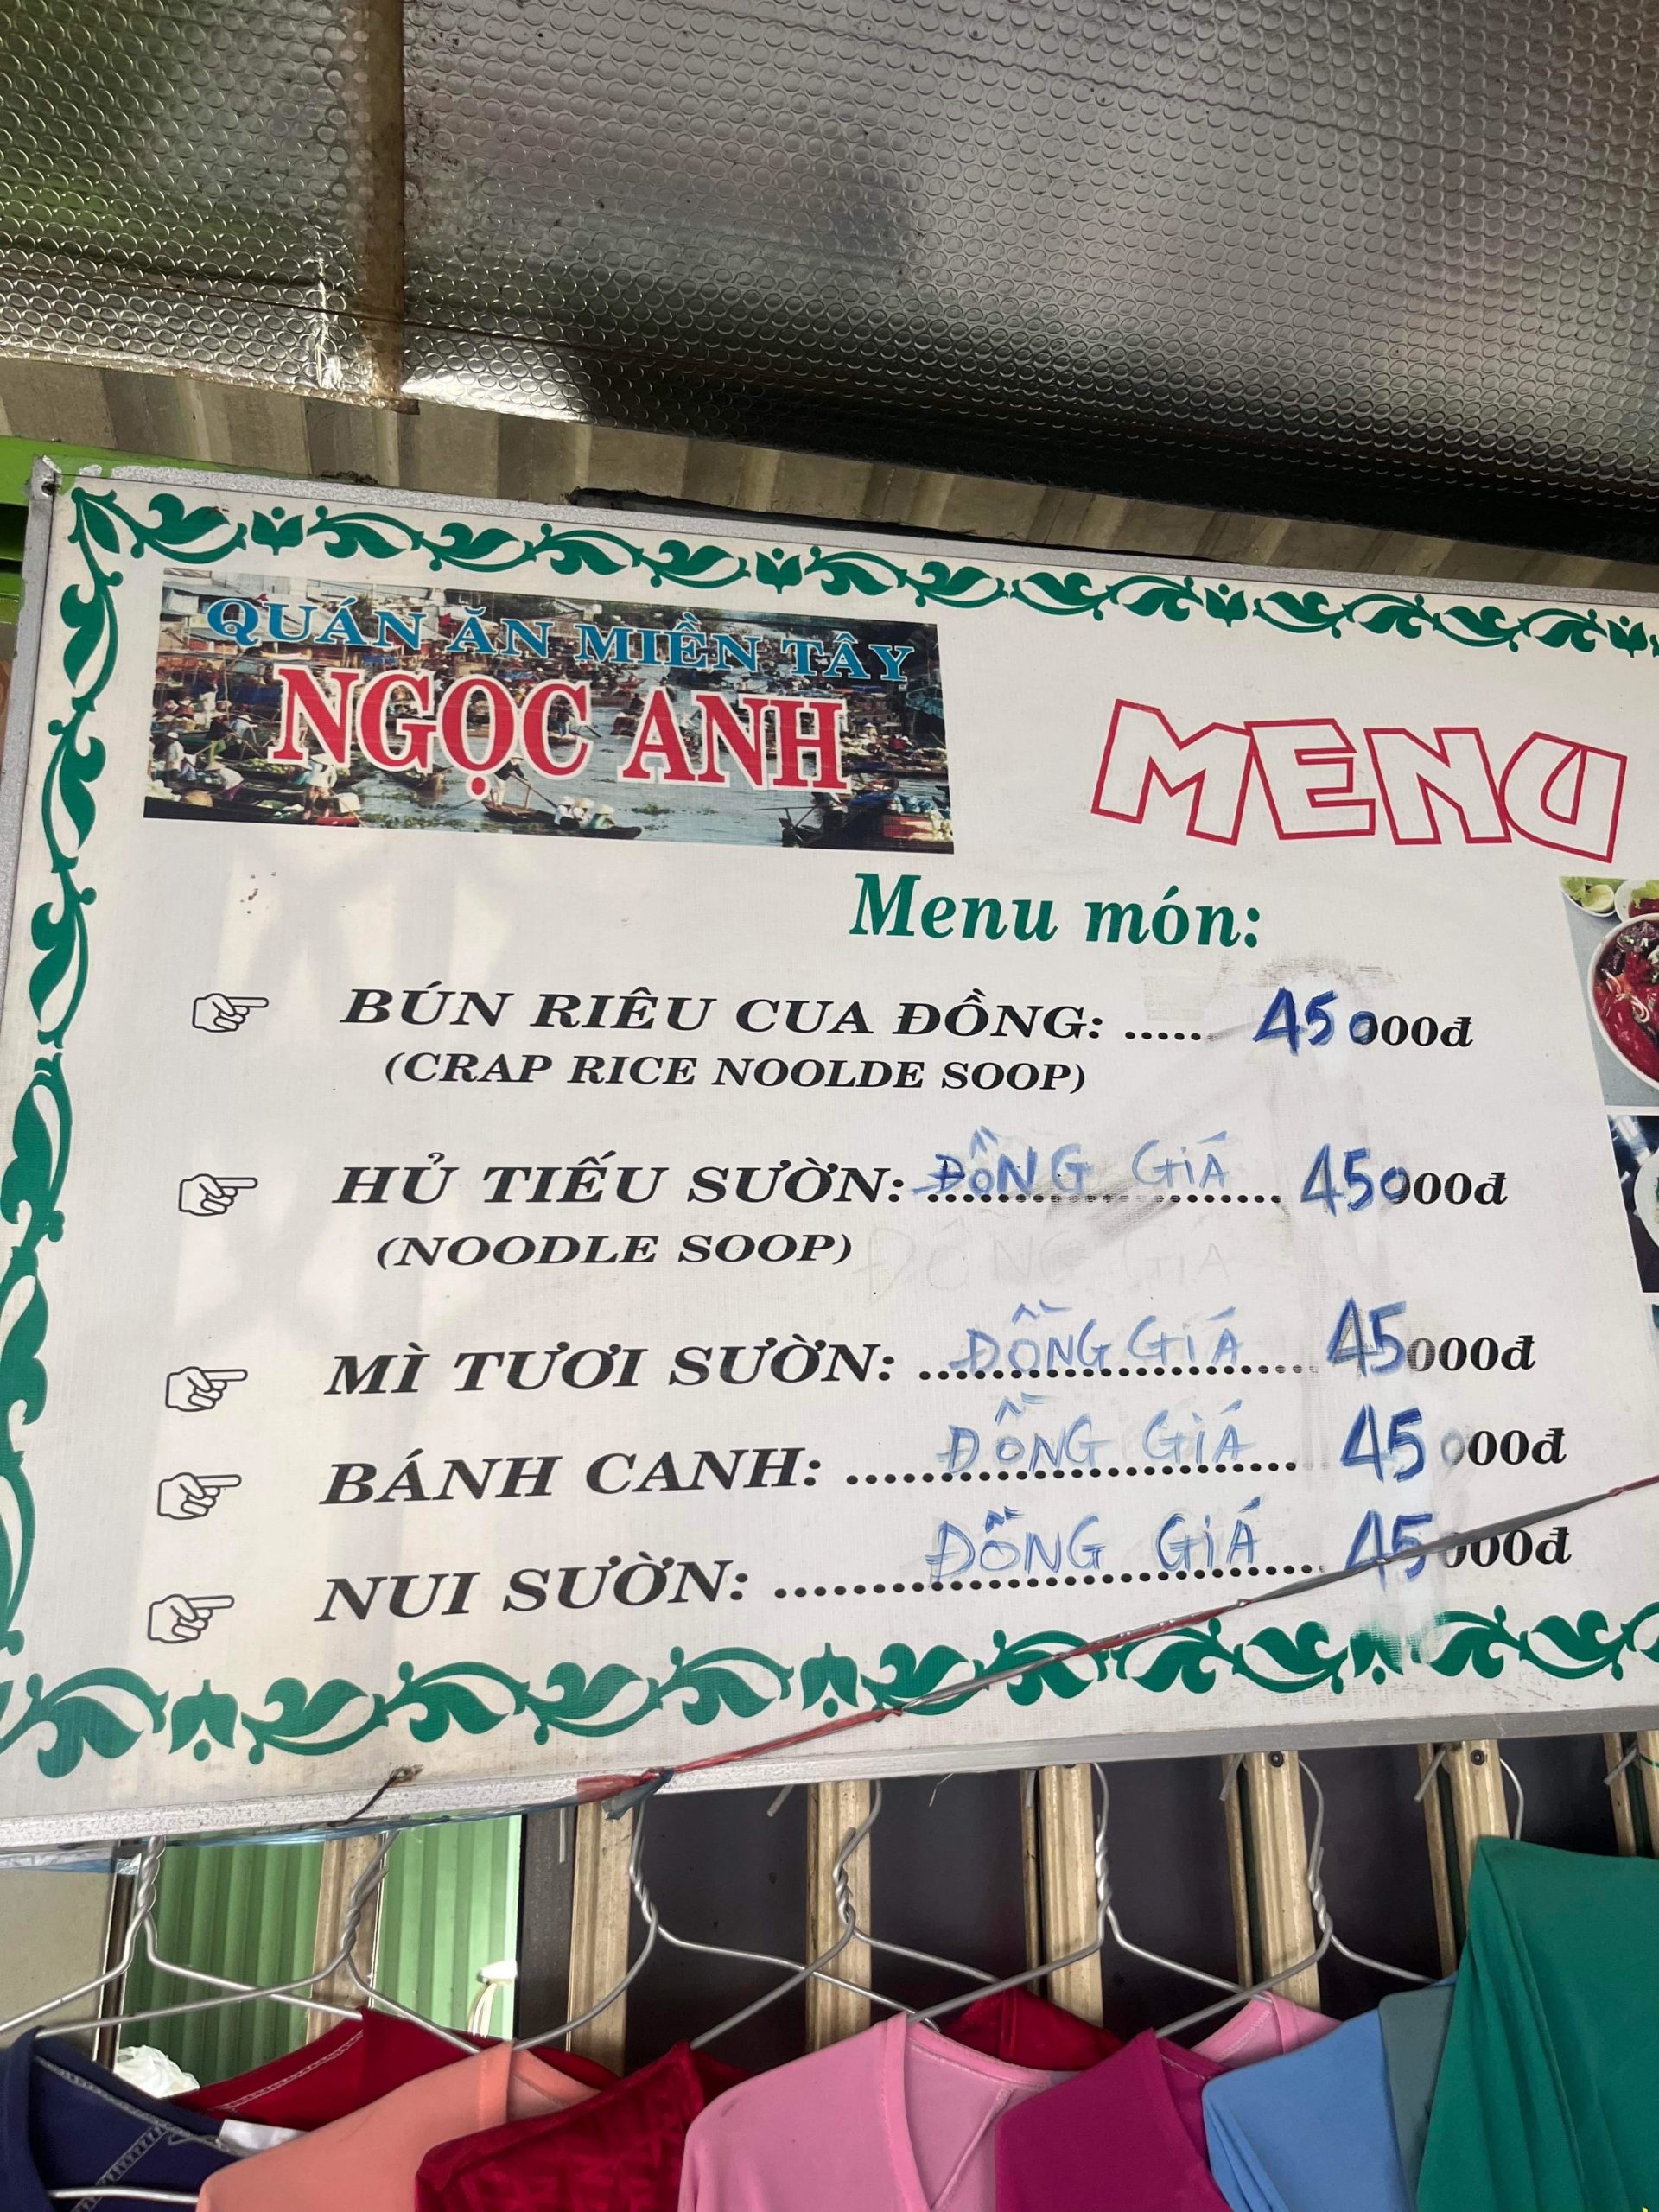 QUÁN ĂN MIỀN TÂY
NGỌC ANH
MENU
Menu món:
BÚN RIÊU CUA ĐỒNG: ...... 45000đ
(CRAP RICE NOOLDE SOOP)
HỦ TIẾU SƯỜN: ĐỒNG GIÁ 45000đ
(NOODLE SOOP)
ĐỒNG GIÁ
MÌ TƯƠI SƯỜN: ĐỒNG GIÁ 45000đ
BÁNH CANH: ĐỒNG GIÁ 45000đ
NUI SƯỜN: ĐỒNG GIÁ 45000đ